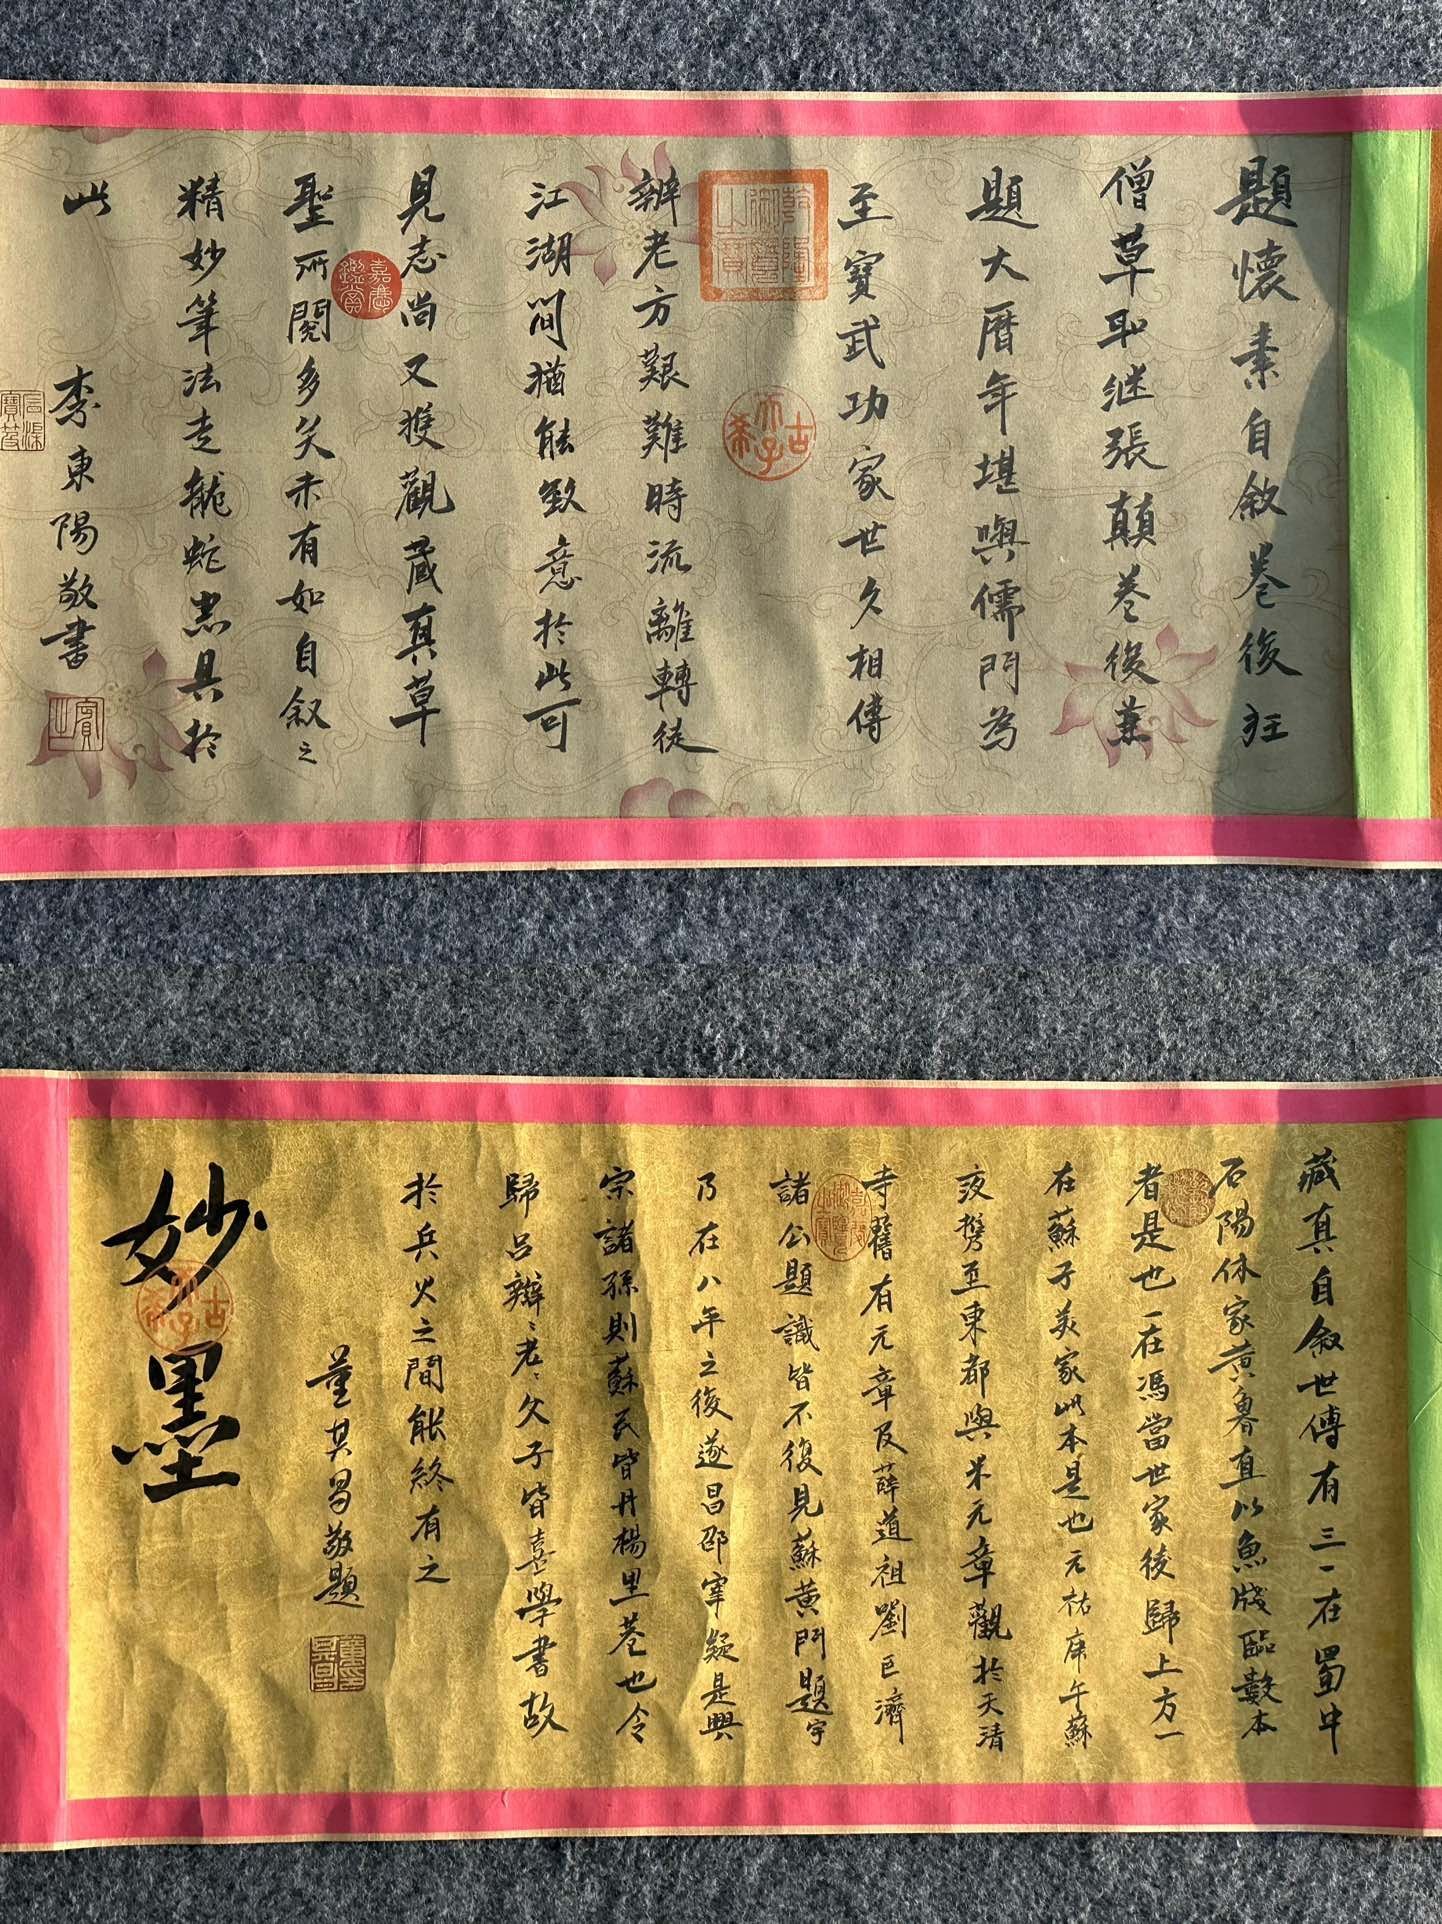 題懷素自敘卷後狂
僧草聖継張顛卷後兼
題大曆年堪與儒門為
至寶武功家世久相傳
乾隆御覽之寶
古稀天子
辨老方艱難時流離轉徒
江湖間猶能致意於此可
見志尚又獲觀藏真草
嘉慶鑑賞
聖所閱多矣未有如自叙之
精妙筆法走龍蛇盡具於
此
李東陽敬書
藏真自叙世傳有三一在蜀中
石陽休家黄魯直以魚牋臨數本
者是也一在馮當世家後歸上方一
在蘇子美家此本是也元祐庚午蘇
液携至東都與米元章觀於天清
寺舊有元章及薛道祖劉巨濟
諸公題識皆不復見蘇黄門題字
乃在八年之後遂昌邵宰疑是興
宗諸孫則蘇氏皆丹楊里巷也今
歸吕辯老老父子皆喜學書故
於兵火之間能終有之
董其昌敬題
妙墨
古稀天子